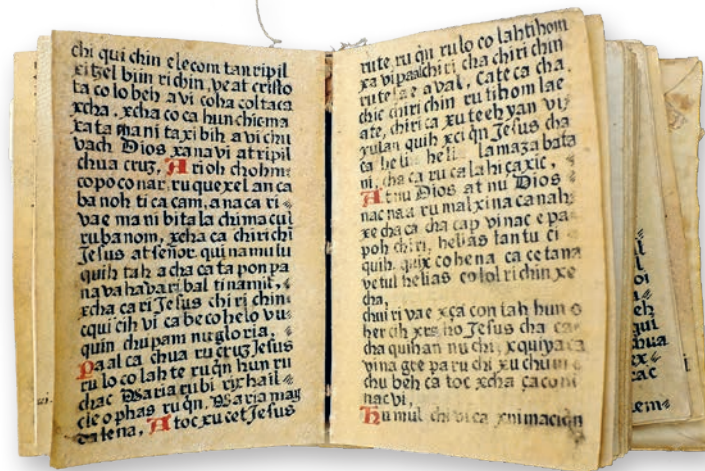 chi qui chin elecom tan ripil
xitzel biin ri chin, ve at cristo
ta co lo beh a vi coha col taca
xcha. xcha co ca hun chic ma
xa ta mani ta xi bih a vi chu
vach Dios xa na vi at ripil
chua cruz, A rioh chohm
copoco nar, ru que xel an ca
ba noh ti ca cam, ana ca ri
vae ma ni bita la chi ma cul
ru ba nom, xcha ca chiri chi
Jesus at señor. qui na mu lu
quih tah a cha ca ta pon pa
na va ha va ri bal ti na mit,
xcha ca ri Jesus chi ri chin
cqui cih vi ca be co helo vu
quin chu pam nu gloria,
Paal ca chua ru cruz Jesus
ru lo co lah te ru qn hun ru
chac Maria ru bi rix hail
cleophas ru qn. Maria mag
dalena, A toc xu cet Jesus
rute, ru qn ru lo co lah tihom
xa vi paal chi ri cha chiri chin
rute la e aval, Cate ca cha,
chic chiri chin ru tihom lae
ate, chiri ca xu teeh yan vi
xulan quih xci qn Jesus cha
ca heli heli lamazabata
ni, cha ca ru ca la hi ca xic,
At nu Dios at nu Dios
nac naa ru mal xi na ca nah
xe cha ca cha cap vinac e pa
poh chiri, helias tan tu ci
quih. quix cohena ca ce tana
ve tul helias colol ri chin xe
cha,
chui ri vae xca con tah hun o
her cih xrs ho Jesus cha ca
cha quihan nu chi, xquiya ca
vina gte pa ru chi xu chu
chu beh ca toc xcha ca coni
nac vi,
Hu mul chi vi ca xnimaciqn